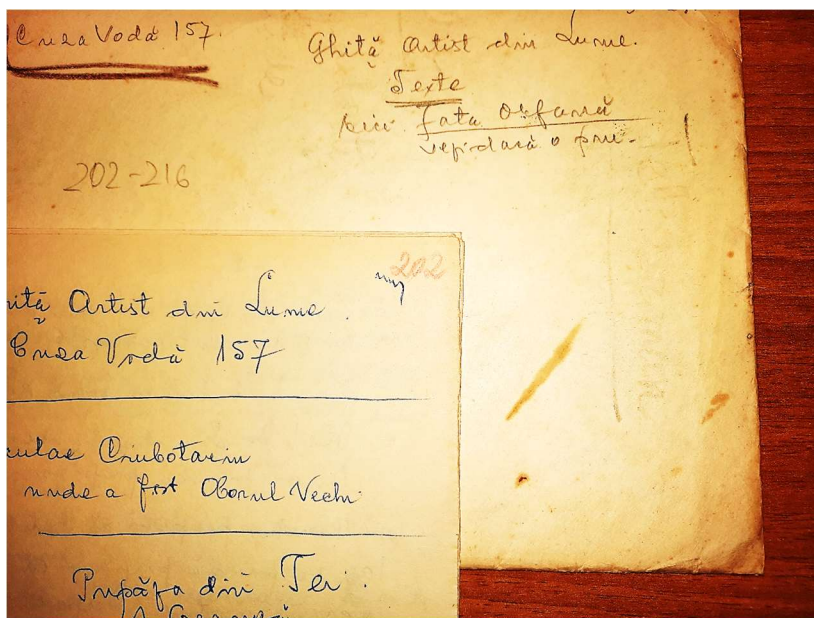 Cuza Vodă 157.
Ghiță Artist din Lume.
Texte
Fata Orfană
202-216
202
Artist din Lume.
Cuza Vodă 157
Ciubotariu
unde a fost Oborul Vechi
Pupăza din Tei.